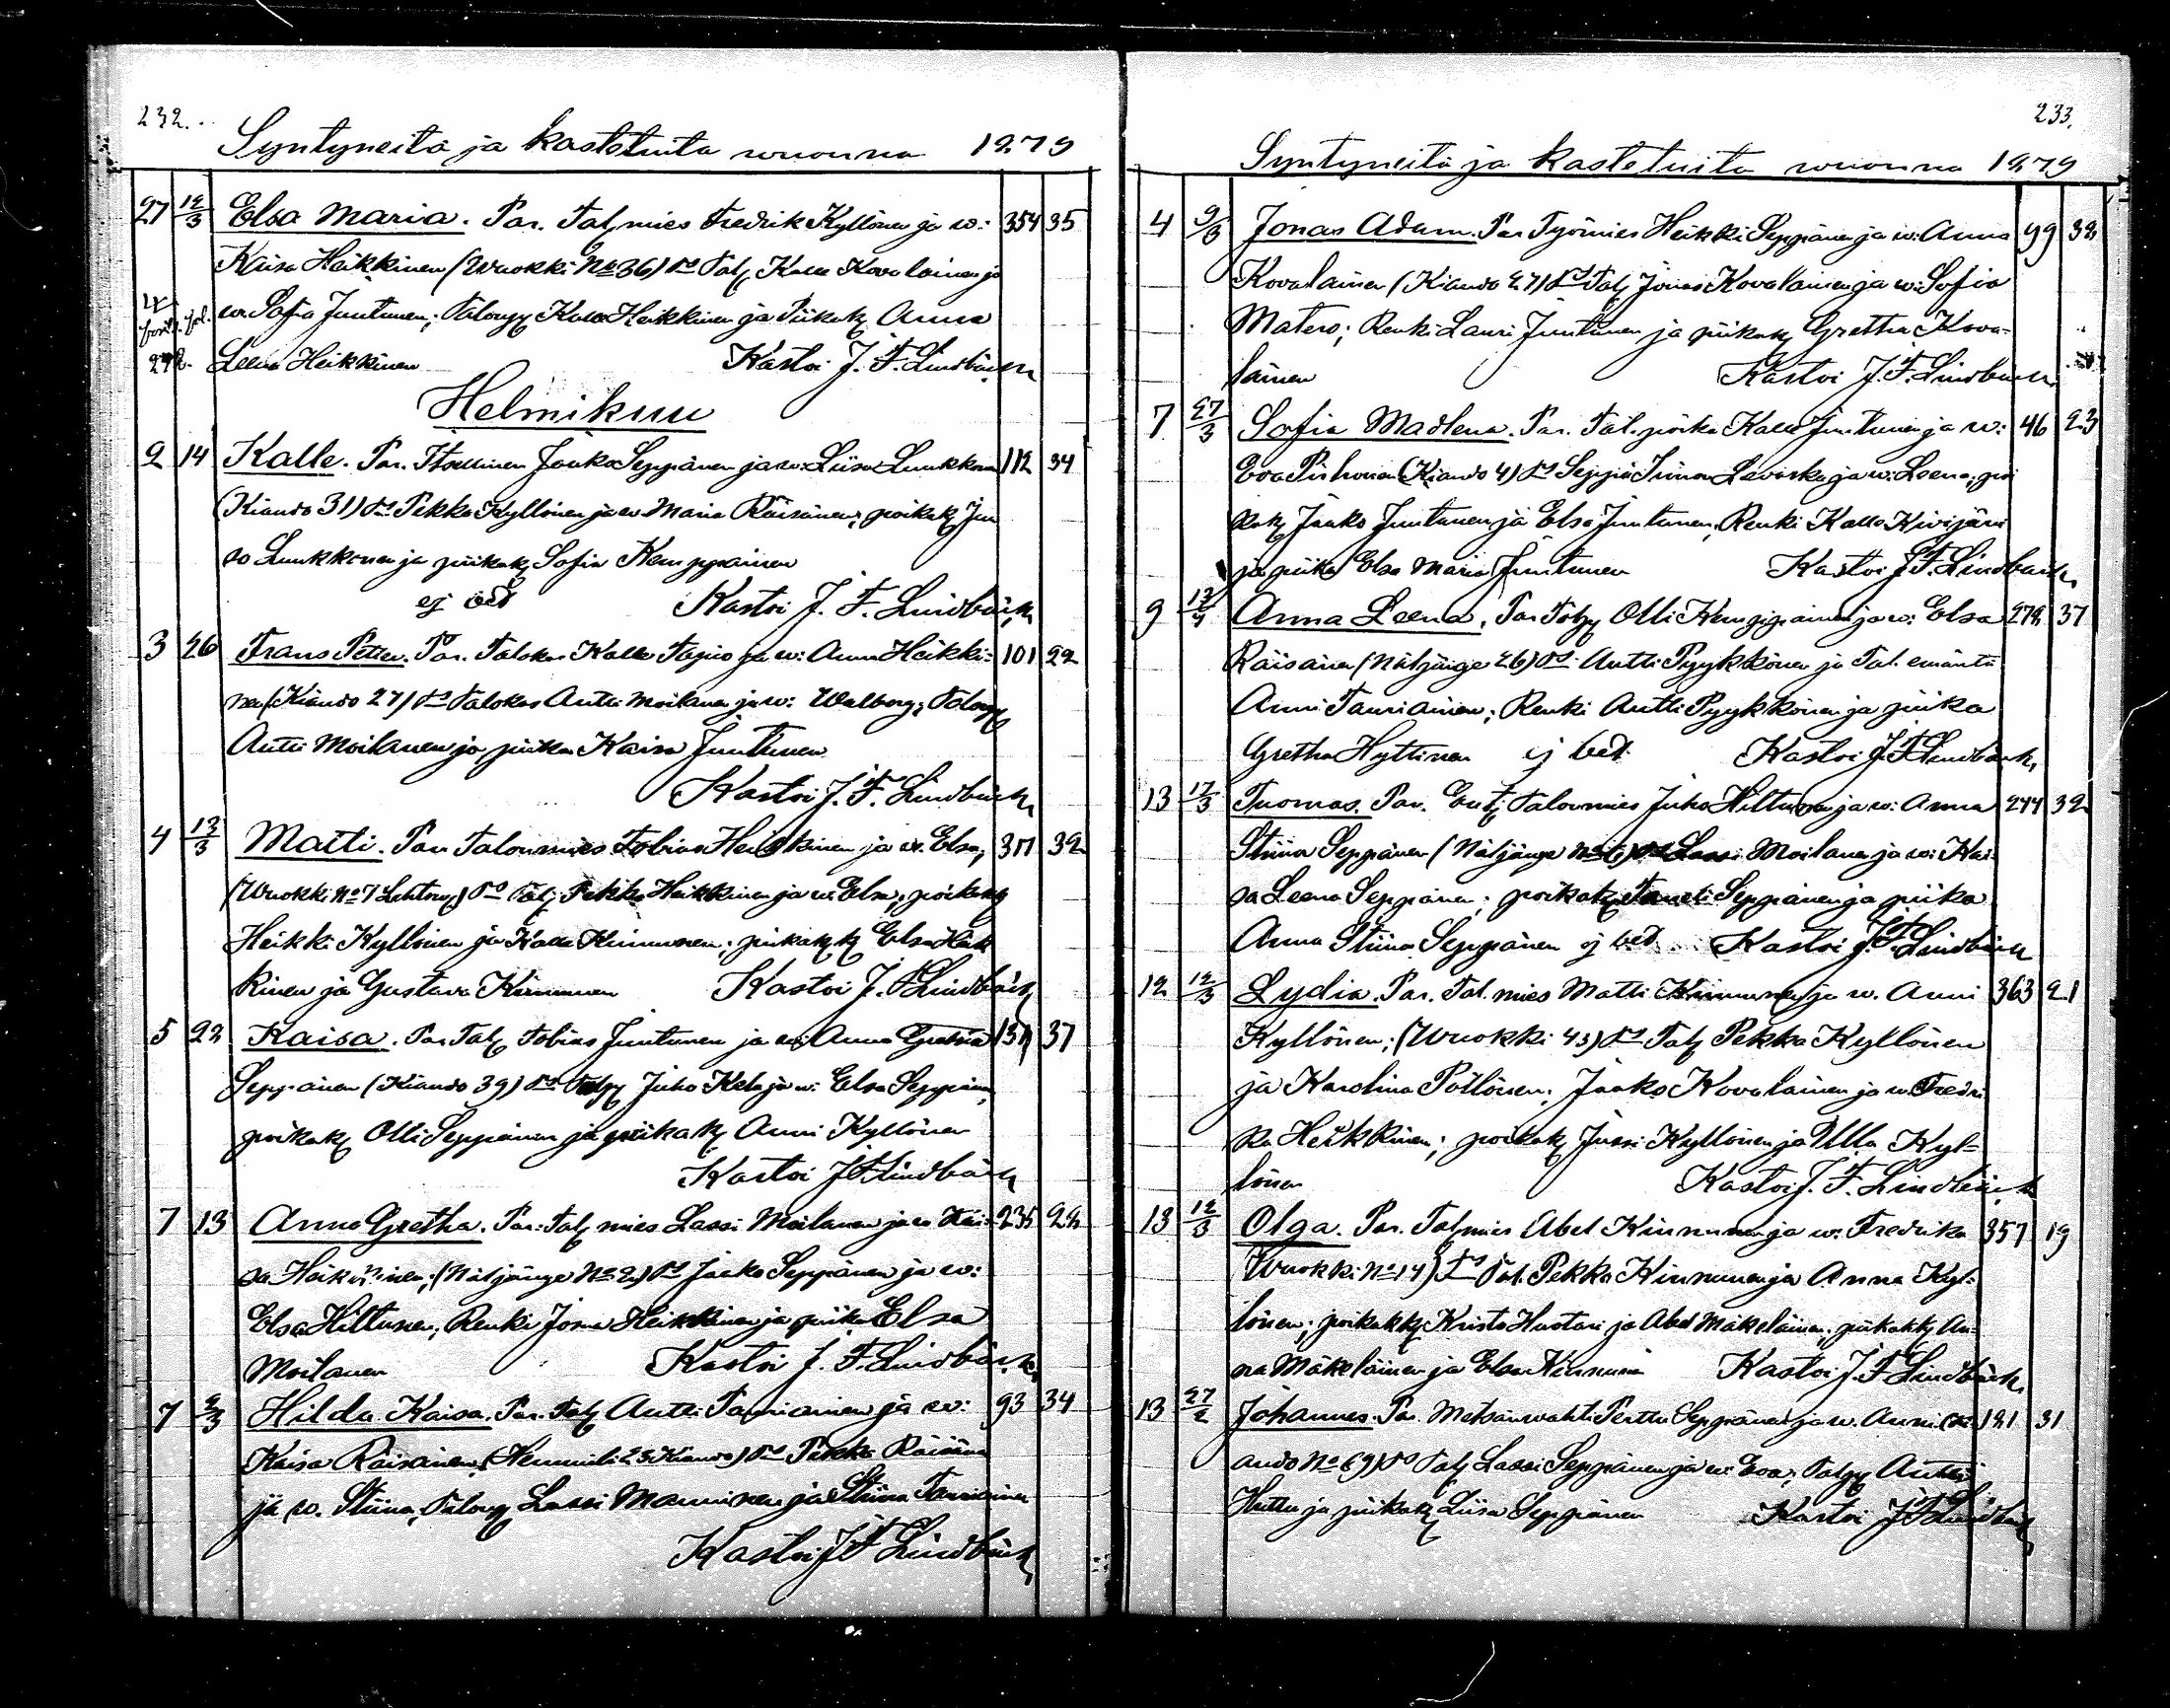 232.
Syntyneitä ja kastetuita wuonna 1879
27 12/3 Elsa Maria. Par. Tal. mies Fredrik Kyllönen ja w: 354 35
Kaisa Heikkinen (Wuokki No 36) Ts Tal. Kalle Kovalainen ja
w. Sofia Juntunen; Talonp Kalle Heikkinen ja Piikak Anna
Leena Heikkinen Kastoi J. F. Lindbäck
Helmikuu
2 14 Kalle. Par. Itsellinen Jaako Seppänen ja w: Liisa Luukkonen 112 34
(Kiando 31) Ts Pekka Kyllönen ja w. Maria Räisänen; poikak Juu
so Luukkonen ja piikak Sofia Kemppainen
ej vet Kastoi J. F. Lindbäck
3 26 Frans Petter. Par. Talokas Kalle Tapio ja w: Anna Heikki- 101 22
nen (Kiando 27) Ts Talokas Antti Moilanen ja w: Walborg; Talonp
Antti Moilanen ja piika Kaisa Juntunen
Kastoi J. F. Lindbäck
4 13/3 Matti. Par. Talonmies Tobias Heikkinen ja w. Elsa, 311 32
(Wuokki No 7 Lehtow) Ts Tal. Pekka Heikkinen ja w. Elsa; poikak
Heikki Kyllönen ja Kalle Kinnunen; piikak Elsa Heik
kinen ja Gustava Kinnunen Kastoi J. F. Lindbäck
5 22 Kaisa. Par. Tal. Tobias Juntunen ja w: Anna Gretha 137 37
Seppänen (Kiando 39) Ts Talp Juho Kela ja w: Elsa Seppänen,
poikak Olli Seppänen ja piikak Anni Kyllönen
Kastoi J. F. Lindbäck
7 13 Anna Gretha. Par. Tal. mies Lassi Moilanen ja w Kai- 235 22
sa Heikkinen; (Näljänge No 2) Ts Jaako Seppänen ja w:
Elsa Hiltunen; Renki Joma Heikkinen ja piika Elsa
Moilanen Kastoi J. F. Lindbäck
7 2/3 Hilda Kaisa. Par. Tal. Antti Tauriainen ja w: 93 34
Kaisa Räisänen, (23 Kiando) Ts Pekka Räisänen
ja w. Stiina, Talonp Lassi Manninen ja Stiina Tauriainen
Kastoi J. F. Lindbäck
233.
Syntyneitä ja kastetuita wuonna 1879
4 9/3 Jonas Adam. Par Työmies Heikki Seppänen ja w: Anna 99 32
Kovalainen (Kiando 27) Ts Tal. Jonas Kovalainen ja w: Sofia
Matero; Renki Lauri Juntunen ja piikak Gretha Kova-
lainen Kastoi J. F. Lindbäck
7 27/3 Sofia Madlena. Par. Tal. poika Kalle Juntunen ja w: 46 23
Eva Pirhonen (Kiando 4) Ts Seppä Lavaska ja w: Leena; poi
kak Jaako Juntunen ja Elsa Juntunen, Renki Kalle Kivijärvi
ja piika Elsa Maria Juntunen Kastoi J. F. Lindbäck
9 13/4 Anna Leena. Par Talp Olli Kemppainen ja w: Elsa 272 37
Räisänen (Näljänge 26) Ts Antti Pyykkönen ja Tal. emäntä
Anni Tauriainen; Renki Antti Pyykkönen ja piika
Gretha Hyttinen ej vet. Kastoi J. F. Lindbäck
13 17/3 Tuomas. Par. Talonmies Juho Hiltunen ja w: Anna 244 32
Stiina Seppänen (Näljänge No 6) Ts Lassi Moilanen ja w: Kai-
sa Leena Seppänen; poikak Taneli Seppänen ja piika
Anna Stiina Seppänen ej vet Kastoi J. F. Lindbäck
12 12/3 Lydia. Par. Tal. mies Matti Kinnunen ja w. Anni 363 21
Kyllönen; (Wuokki 43) Ts Tal. Pekka Kyllönen
ja Karolina Pöllönen; Jaako Kovalainen ja w. Fredri
ka Heikkinen; poikak Jussi Kyllönen ja Ulla Kyl-
lönen Kastoi J. F. Lindbäck
13 12/3 Olga. Par. Tal. mies Abel Kinnunen ja w: Fredrika 357 19
(Wuokki No 14) Ts Tal. Pekka Kinnunen ja Anna Kyl-
lönen; poikakk Kristo Hustari ja Abel Mäkeläinen; piikakk An-
na Mäkeläinen ja Elsa Kinnunen Kastoi J. F. Lindbäck
13 27/2 Johannes. Par. Metsänwahti Perttu Seppänen ja w. Anni (Ki 181 31
ando No 69) Ts Tal. Lassi Seppänen ja w: Eva; Talp Antti
Huttu ja piikak Liisa Seppänen Kastoi J. F. Lindbäck